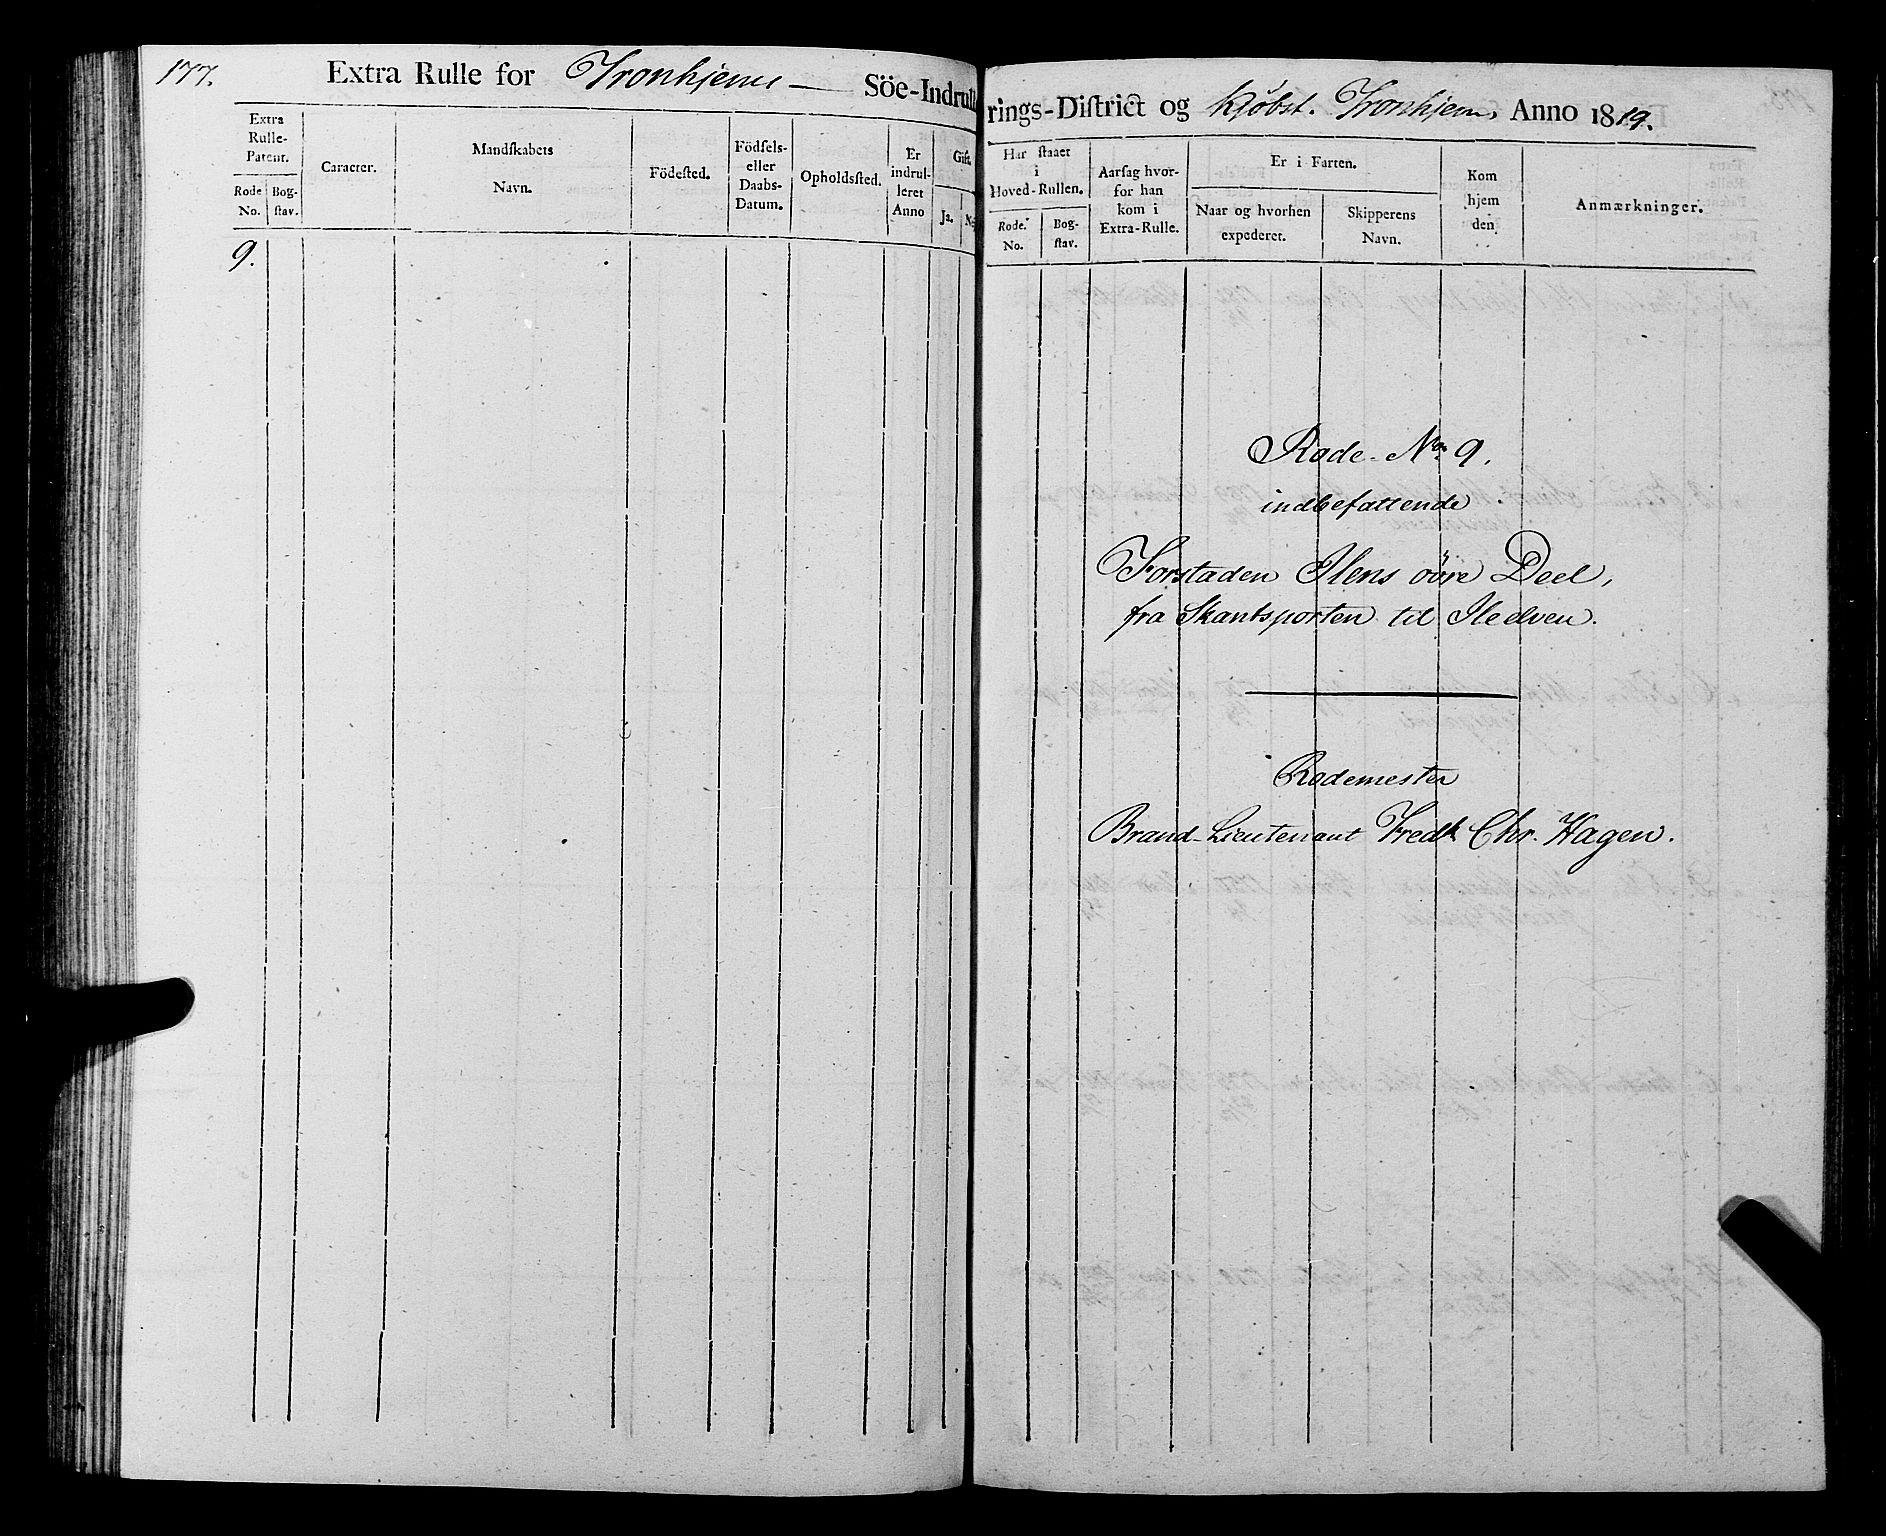 177.
Extra Rulle for Tronhjems — Söe-Indrulle
rings-District og Kjöbst. Tronhjem, Anno 1819.
Extra Rulle-Patent.
Rode No.
Bog-stav.
Caracter.
Mandskabets Navn.
Födested.
Födsels- eller Daabs-Datum.
Opholdssted.
Er indrul-leret Anno
Gift.
Ja.
Har staaet i Hoved-Rullen.
Rode. No.
Bog-stav.
Aarsag hvor-for han kom i Extra-Rulle.
Er i Farten.
Naar og hvorhen expederet.
Skipperens Navn.
Kom hjem den
Anmærkninger.
9.
Rode No. 9.
indbefattende
Forstaden Ilens övre Deel,
fra Skantsporten til Ileelven.
Rodemester
Brand-Lieutenant Fredk Chr. Hagen.